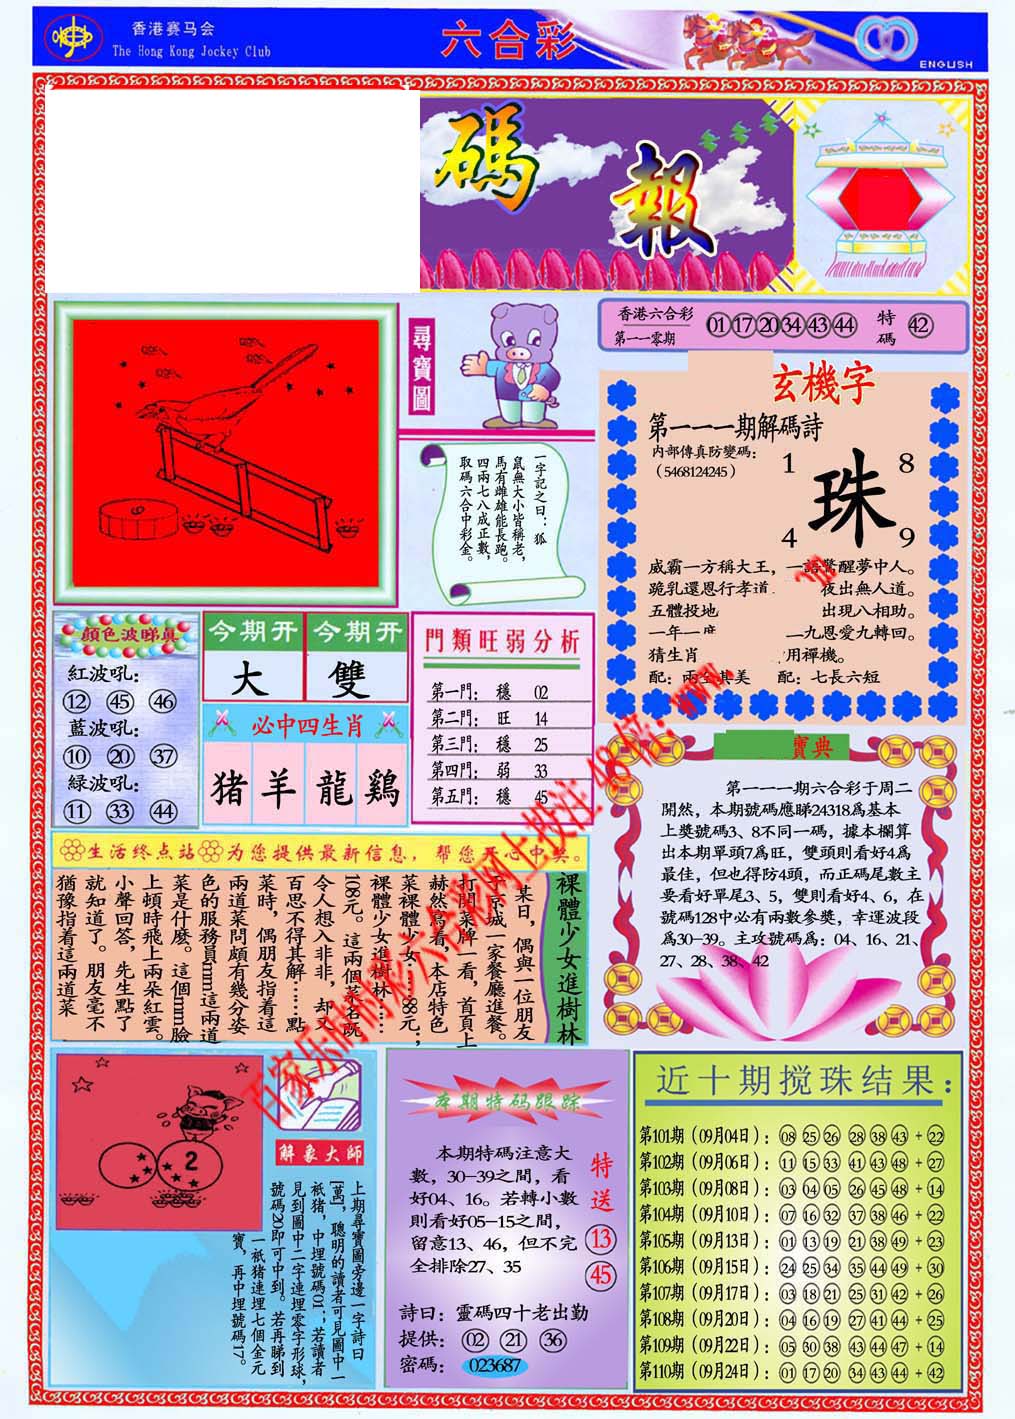 香港赛马会
The Hong Kong Jockey Club
六合彩
ENGLISH
碼報
尋寶圖
香港六合彩
第一一零期
01 17 20 34 43 44
特碼
42
一字記之曰：狐
鼠無大小皆稱老，
馬有雌雄能長跑。
四兩七八成正數，
取碼六合中彩金。
玄機字
第一一一期解碼詩
内部傳真防變碼：
（5468124245）
1
8
珠
4
9
威霸一方稱大王，一語驚醒夢中人。
跪乳還恩行孝道 夜出無人道。
五體投地 出現八相助。
一年一度 二九恩愛九轉回。
猜生肖 用禪機。
配：兩全其美 配：七長六短
顏色波睇真
紅波吼：
12 45 46
藍波吼：
10 20 37
緑波吼：
11 33 44
今期开 今期开
大 雙
必中四生肖
猪 羊 龍 鷄
門類旺弱分析
第一門： 穩 02
第二門： 旺 14
第三門： 穩 25
第四門： 弱 33
第五門： 穩 45
寶典
第一一一期六合彩于周二
開然，本期號碼應睇24318爲基本
上獎號碼3、8不同一碼，據本欄算
出本期單頭7爲旺，雙頭則看好4爲
最佳，但也得防4頭，而正碼尾數主
要看好單尾3、5，雙則看好4、6，在
號碼128中必有兩數參獎，幸運波段
爲30-39。主攻號碼爲：04、16、21、
27、28、38、42
生活终点站 为您提供最新信息，帮您开心中奖。
裸體少女進樹林
某日，偶與一位朋友
于京城一家餐廳進餐。
打開菜牌一看，首頁上
赫然寫着，本店特色
菜裸體少女……88元；
裸體少女進樹林……
108元。這兩個菜名既
令人想入非非，却又
百思不得其解……點
菜時，偶朋友指着這
兩道菜問頗有幾分姿
色的服務員mm這兩道
菜是什麽。這個mm臉
上頓時飛上兩朵紅雲。
小聲回答，先生點了
就知道了。朋友毫不
猶豫指着這兩道菜
2
解象大師
上期尋寶圖旁邊一字詩曰
[萬]，聰明的讀者可見圖中一
衹猪，中埋號碼01；若讀者
見到圖中二字連埋零字形球，
號碼20即可中到。若再睇到
一衹猪連埋七個金元
寶，再中埋號碼17。
本期特码跟踪
本期特碼注意大
數，30-39之間，看
好04、16。若轉小數
則看好05-15之間，
留意13、46，但不完
全排除27、35
特送
13
45
詩曰：靈碼四十老出勤
提供：02 21 36
密碼：023687
近十期搅珠结果：
第101期（09月04日）：08 25 26 28 38 43 + 22
第102期（09月06日）：11 15 33 41 43 48 + 27
第103期（09月08日）：03 04 05 26 45 48 + 14
第104期（09月10日）：07 16 32 37 38 46 + 22
第105期（09月13日）：01 13 19 21 38 49 + 23
第106期（09月15日）：24 25 34 35 44 49 + 30
第107期（09月17日）：03 18 21 25 31 42 + 26
第108期（09月20日）：04 16 19 27 41 44 + 25
第109期（09月22日）：05 30 38 43 44 47 + 14
第110期（09月24日）：01 17 20 34 43 44 + 42